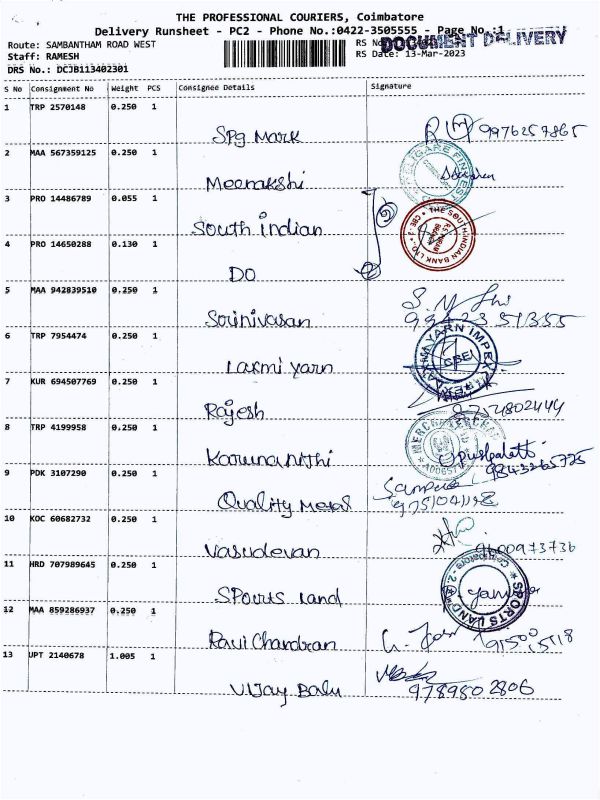 THE PROFESSIONAL COURIERS, Coimbatore
Delivery Runsheet - PC2 - Phone No.:0422-3505555 - Page No.:1
Route: SAMBANTHAM ROAD WEST
RS No
DOCUMENT DELIVERY
Staff: RAMESH
RS Date: 13-Mar-2023
DRS No.: DCJB113402301
S No Consignment No Weight PCS Consignee Details Signature
1 TRP 2570148 0.250 1
Spg Mark
9976257865
2 MAA 567359125 0.250 1
Meenakshi
3 PRO 14486789 0.055 1
South indian
THE SOUTH INDIAN BANK LTD.
4 PRO 14650288 0.130 1
DO
5 MAA 942839510 0.250 1
Srinivasan
6 TRP 7954474 0.250 1
Laxmi yarn
LAXMI YARN IMPEX
CBE
7 KUR 694507769 0.250 1
Rajesh
8 TRP 4199958 0.250 1
Karunanithi
9843265725
9 PDK 3107290 0.250 1
Quality Metal
10 KOC 60682732 0.250 1
Vasudevan
9600973736
11 HRD 707989645 0.250 1
Sports Land
SPORTS LAND
12 MAA 859286937 0.250 1
Ravi Chandran
13 UPT 2140678 1.005 1
Vijay Balu
9789802806